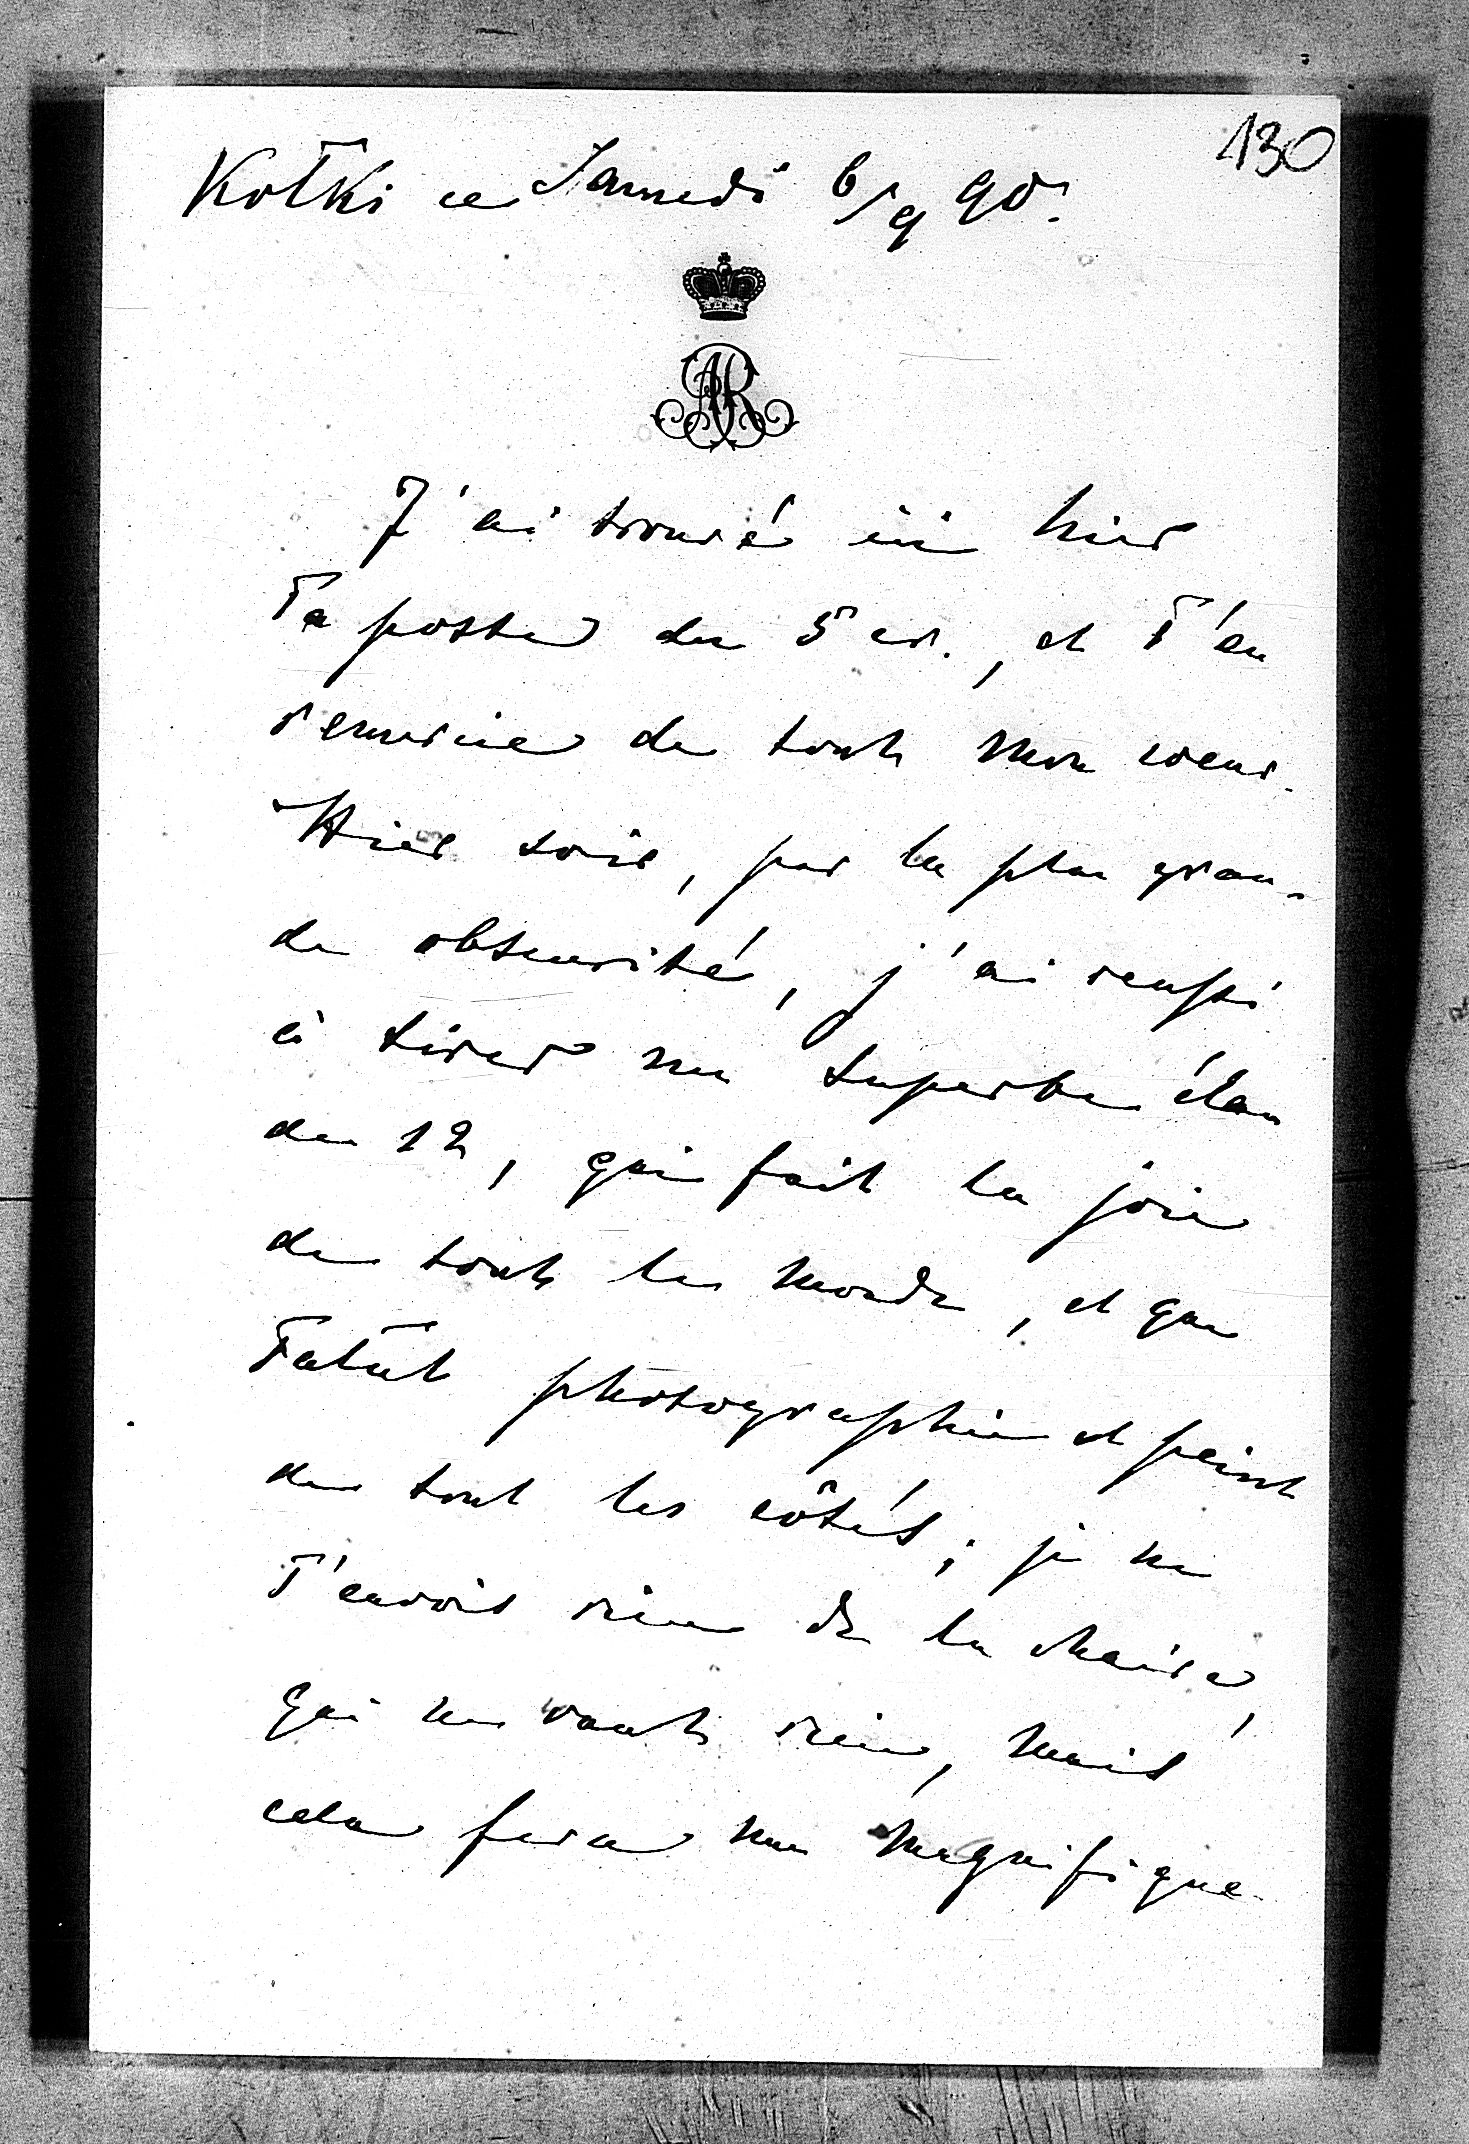 130
Kotki ce Samedi 6/9 90.
AR
J'ai trouvé ici hier
Ta poste du 5 cr., et T'en
remercie de tout mon coeur.
Hier soir, par la plus gran-
de obscurité, j'ai reussi
à tirer un superbe élan
de 12, qui fait la joie
de tout le monde, et que
photographie et peint
de tout les côtés; je ne
T'envois rien de la chaire,
qui ne vaut rien, mais
cela fera une magnifique